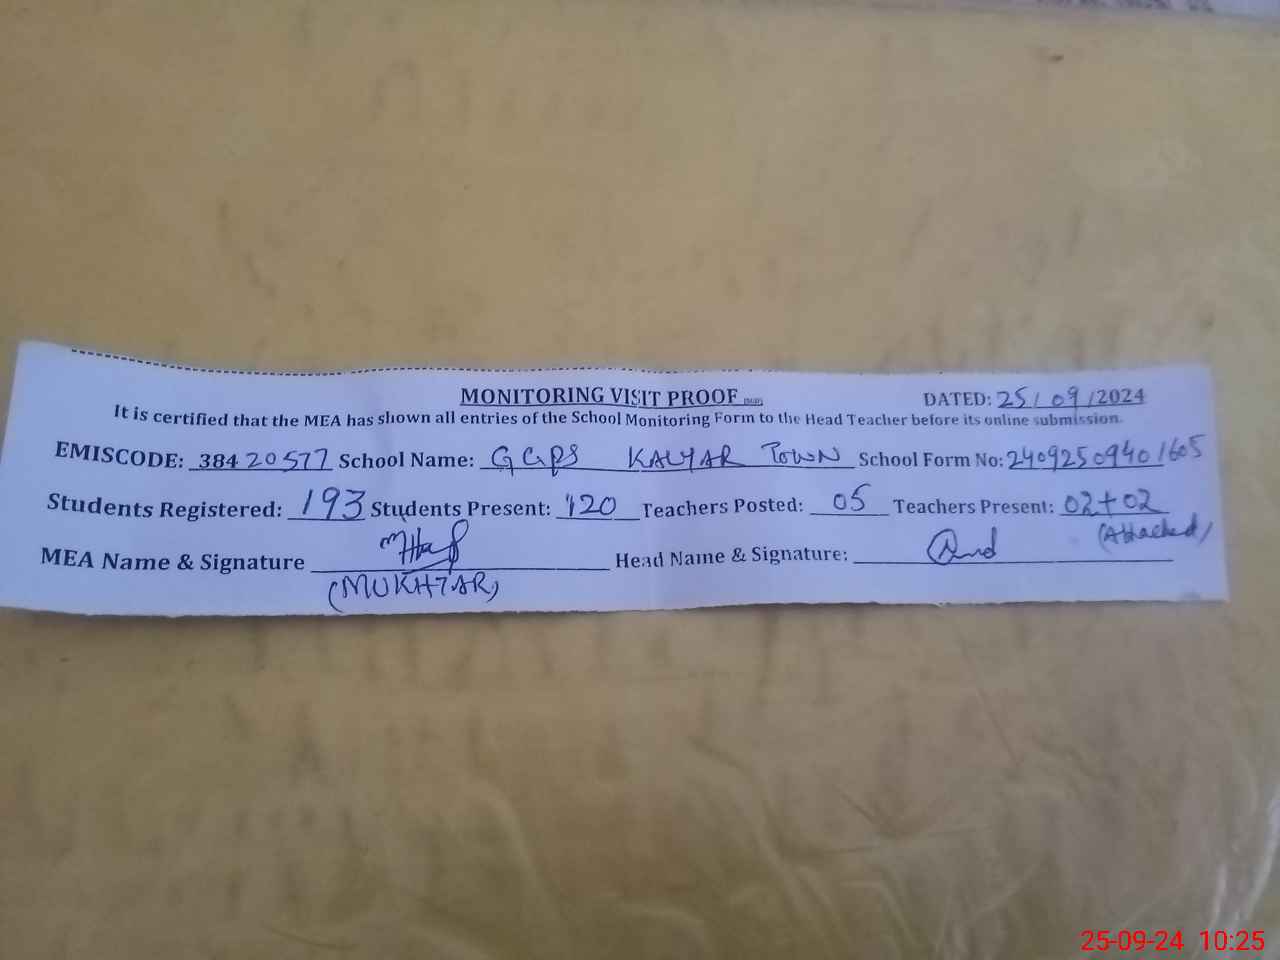 MONITORING VISIT PROOF DATED: 25/09/2024
It is certified that the MEA has shown all entries of the School Monitoring Form to the Head Teacher before its online submission.
EMISCODE: 38420577 School Name: GGPS KALYAR TOWN School Form No: 24092509401605
Students Registered: 193 Students Present: 120 Teachers Posted: 05 Teachers Present: 02+02
(Attached)
MEA Name & Signature Head Name & Signature:
(MUKHTAR)
25-09-24 10:25